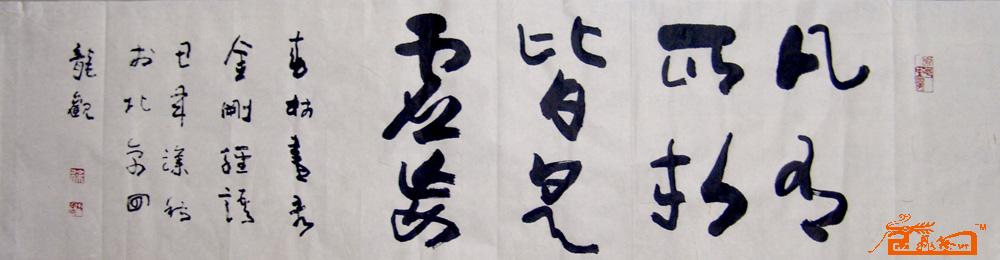 凡有
所相
皆是
虛妄
林書
金剛經語
丑年深秋
於北京回
龍觀